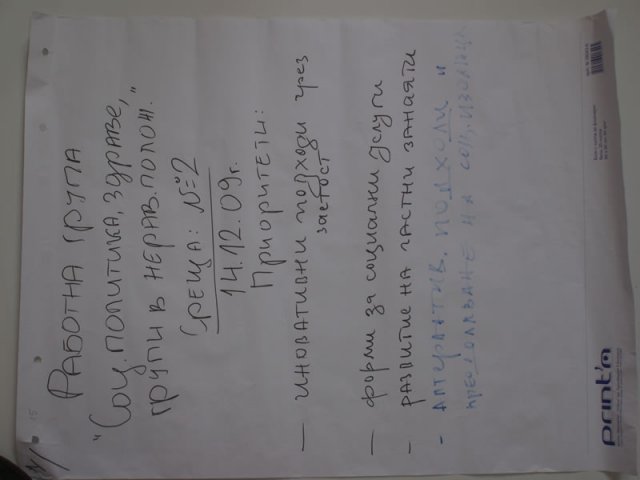 РАБОТНА ГРУПА
"Соц. ПОЛИТИКА, ЗДРАВЕ,
ГРУПИ В НЕРАВ. ПОЛОЖ."
СРЕЩА: №2
14.12.09г.
ПРИОРИТЕТИ:
— иновативни подходи чрез
заетост
— форми за социални услуги
- развитие на частни занаяти
- алтернатив. подходи и
преодоляване на соц. изолация
print'n
15